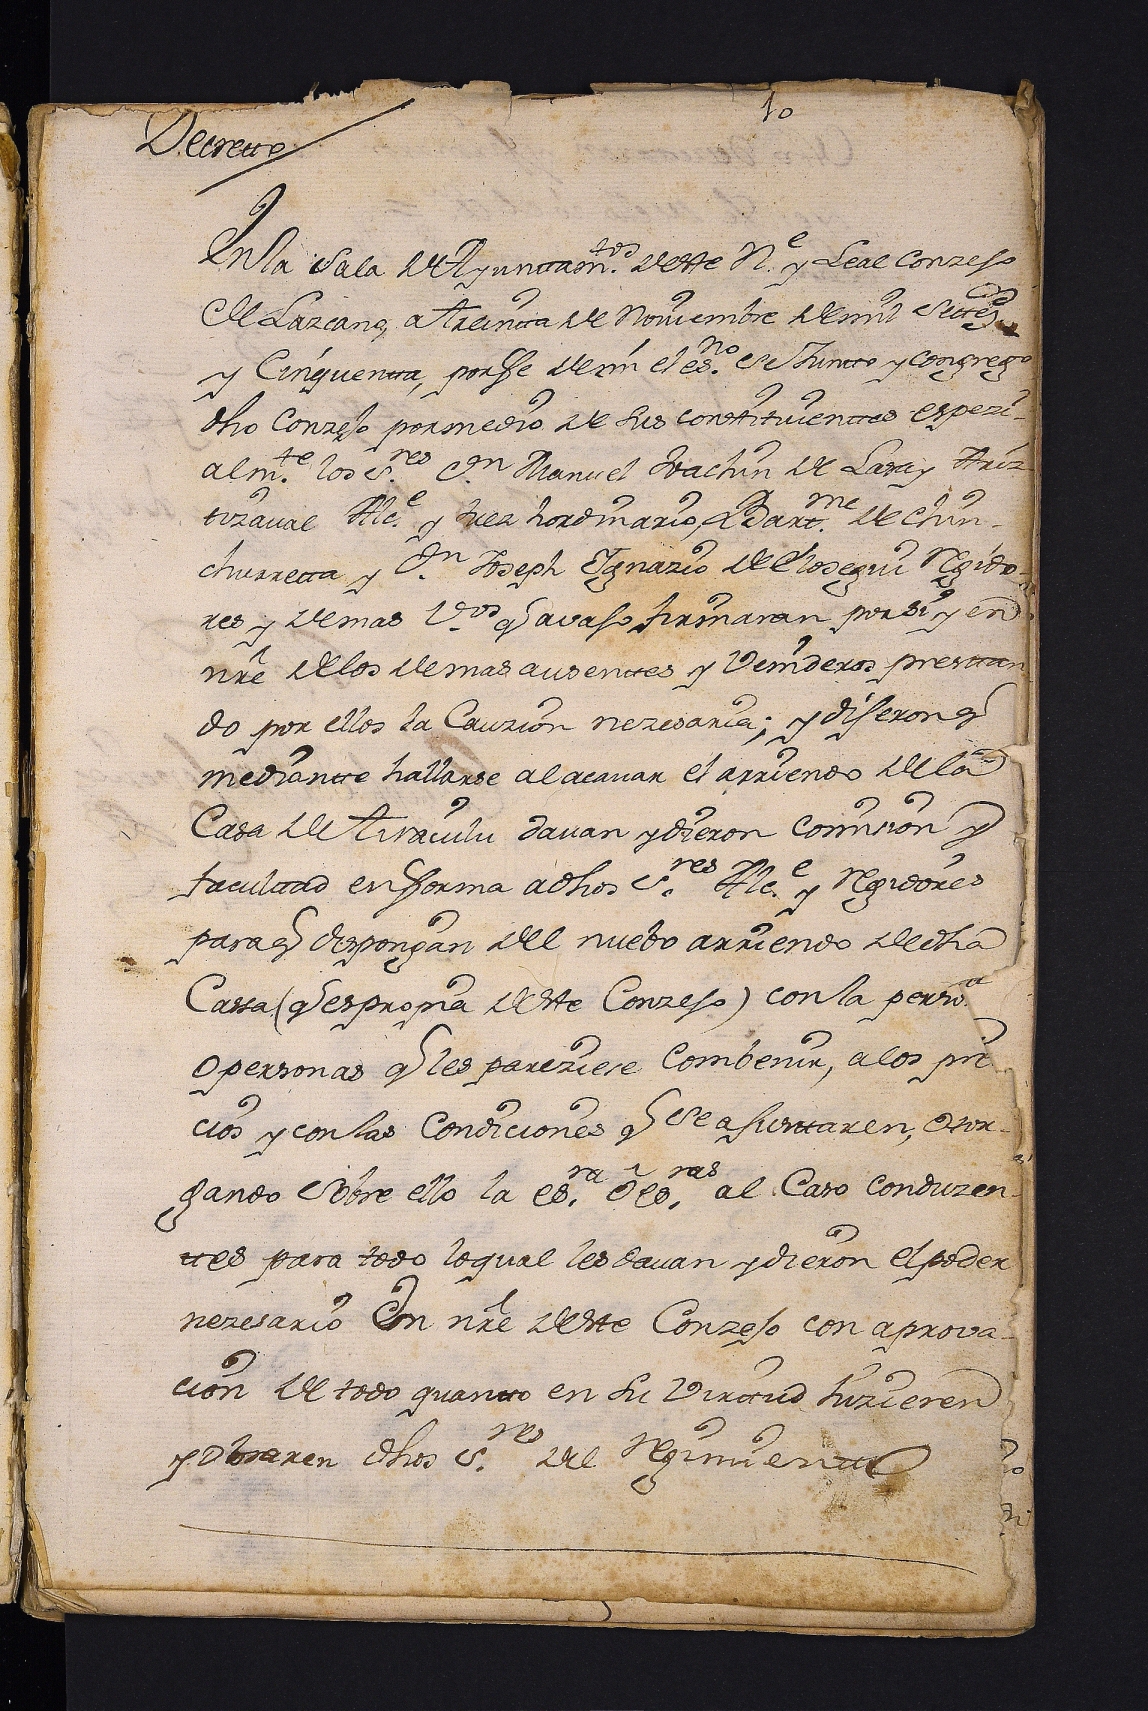 10
Decretto
En la Sala de Ayuntam.tos deste N.e y Leal Conzejo
de Lazcano, a treintta de Noviembre de mil Settez.s
y Cinquentta, por ffe de mi el es.no Se Juntto y congrego
dho Conzejo por medio de sus constituienttes espezi-
alm.te los S.res D.n Manuel Joachin de Lasa y Ariz
tizaval Alc.e y Juez hordinario, Bart.me de Chin-
churretta y D.n Joseph Ygnazio de Elosegui Regido-
res y demas V.os q avajo firmaran por si y en
nre de los demas ausenttes y Venideros presttan
do por ellos la Cauzion nezesaria; y dijeron q
mediantte hallarse al acavar el arriendo de la
Casa de davan y dieron Comision y
facultad en fforma a dhos S.res Alc.e y Regidores
para q dispongan del nuebo arriendo de dha
Cassa (q es propia deste Conzejo) con la persona
o personas q les pareziere Combenir, a los pre
cios y con las Condiciones q Se ajusttaren, Otor-
gando Sobre ello la es.ra ô es.ras al Caso conduzen-
ttes para todo lo qual les davan y dieron el poder
nezesario En nre deste Conzejo con aprova-
cion de todo quantto en su Virttud hizieren
y obraren dhos S.res del Regimientto